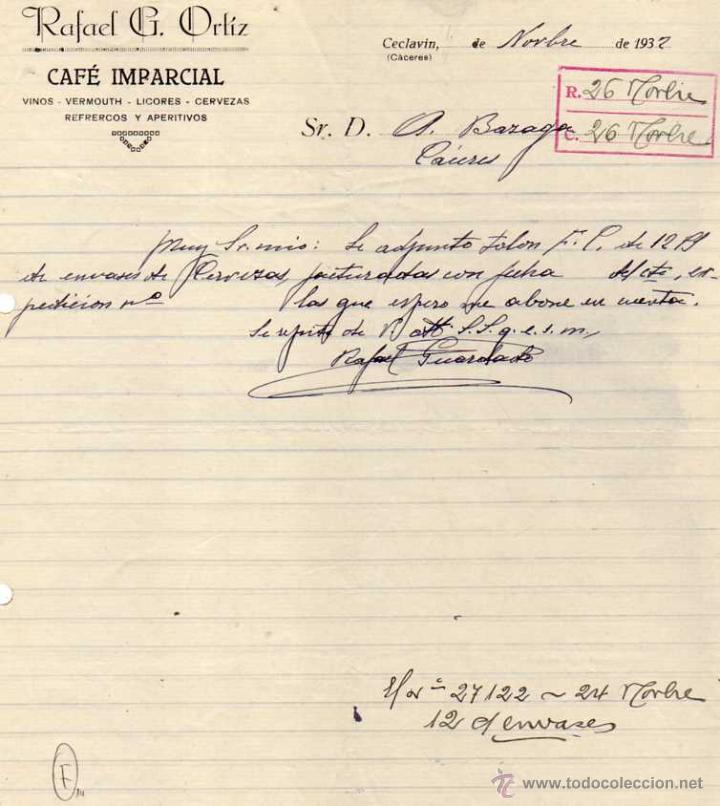 Rafael G. Ortíz
CAFÉ IMPARCIAL
VINOS - VERMOUTH - LICORES - CERVEZAS
REFRERCOS Y APERITIVOS
Ceclavin, de Novbre de 1937
(Cáceres)
R. 26 Novbre
C. 26 Novbre
Sr. D. A. Bazaga
Cáceres
Muy Sr. mio: Le adjunto talon F. C. de 12
de envases de Cervezas, facturadas con fecha del cte, ex-
pedicion nº las que espero me abone en cuenta.
Se repite de V. att. S.S. q. e. s. m,
Rafael Guardado
27122 ~ 24 Novbre
12 c/ envases
F
www.todocoleccion.net